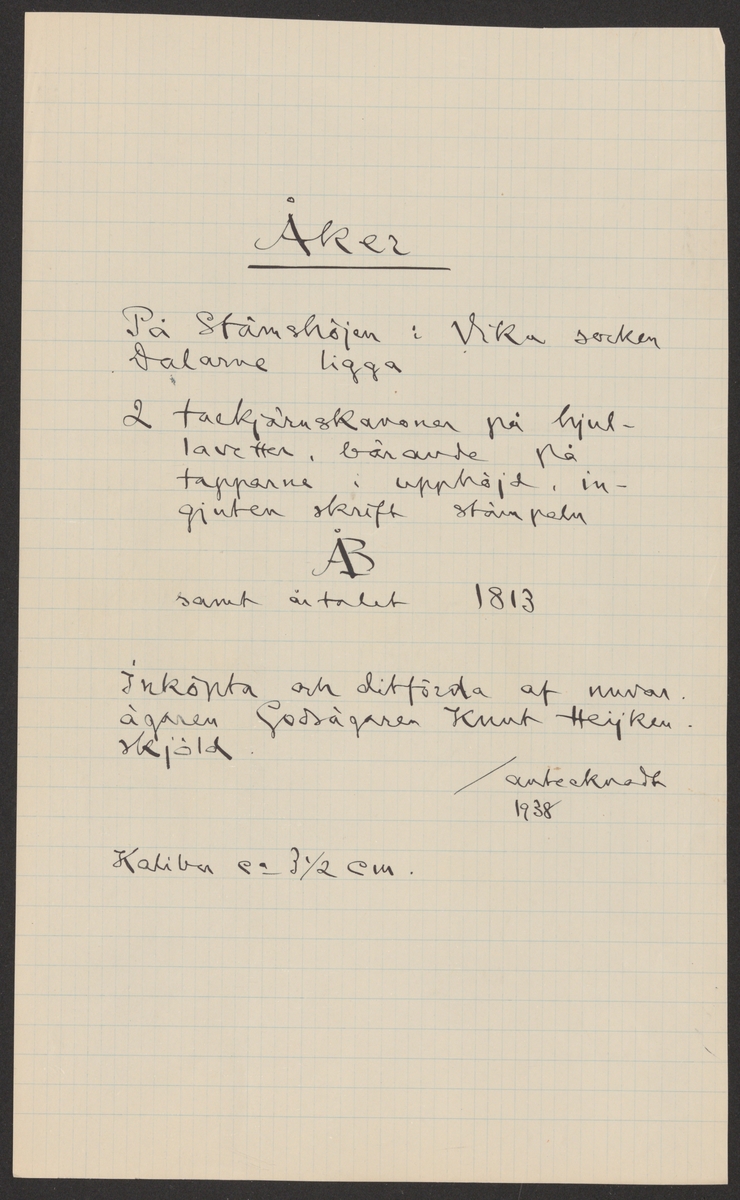 Åker
På Stämshöjen i Vika socken
Dalarne ligga
2 tackjärnskanoner på hjul-
lavetter, bärande på
tapparne i upphöjd, in-
gjuten skrift stämpeln
ÅB
samt årtalet 1813
Inköpta och ditförda af nuvar.
ägaren Godsägaren Knut Heijken-
skjöld.
/antecknadt
1938
Kaliber ca 3 1/2 cm.